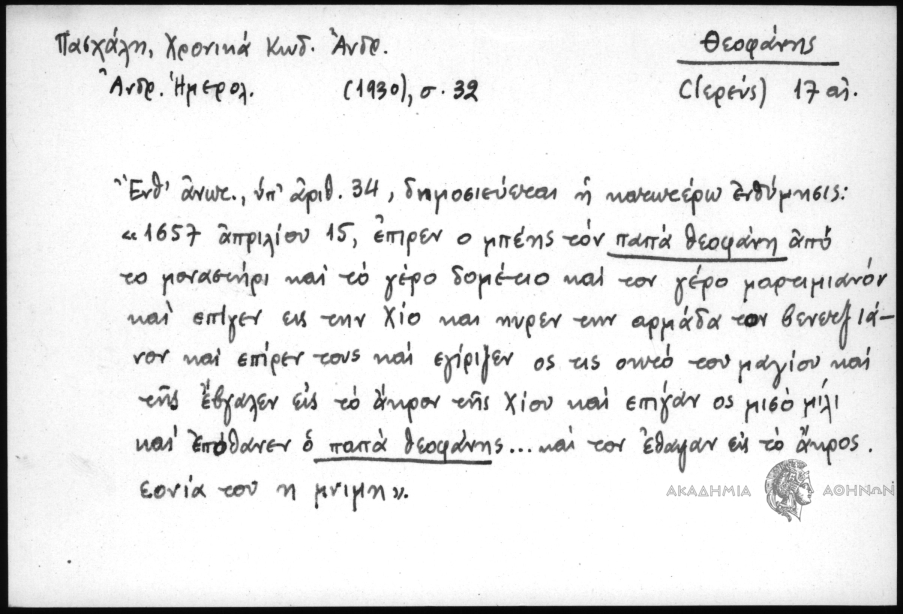 Πασχάλη, Χρονικά Κωδ. Ἄνδρ.
Θεοφάνης
Ἄνδρ. Ἡμερολ. (1930), σ. 32
(ἱερεύς) 17 αἰ.
Ἔνθ' ἄνωτ., ὑπ' ἀριθ. 34, δημοσιεύεται ἡ κατωτέρω ἐνθύμησις:
« 1657 ἀπριλίου 15, ἔπιρεν ο μπέης τόν παπά θεοφάνη ἀπό
το μοναστήρι καί τό γέρο δομέτιο καί τον γέρο μαρτιμιανόν
καί επίγεν εις την Χίο και ηυρεν την αρμάδα τον βενετζιά-
νον καί επίρεν τους καί εγίριζεν ος τις οκτό του μαγίου καί
τῆς ἔβγαλεν εἰς τό ἄκρον τῆς Χίου καί επίγαν ος μισό μίλι
καί ἐπόθανεν ὁ παπά θεοφάνης... καί τον ἔθαψαν εἰς τό ἄκρος.
εονία του η μνιμη».
ΑΚΑΔΗΜΙΑ ΑΘΗΝΩΝ